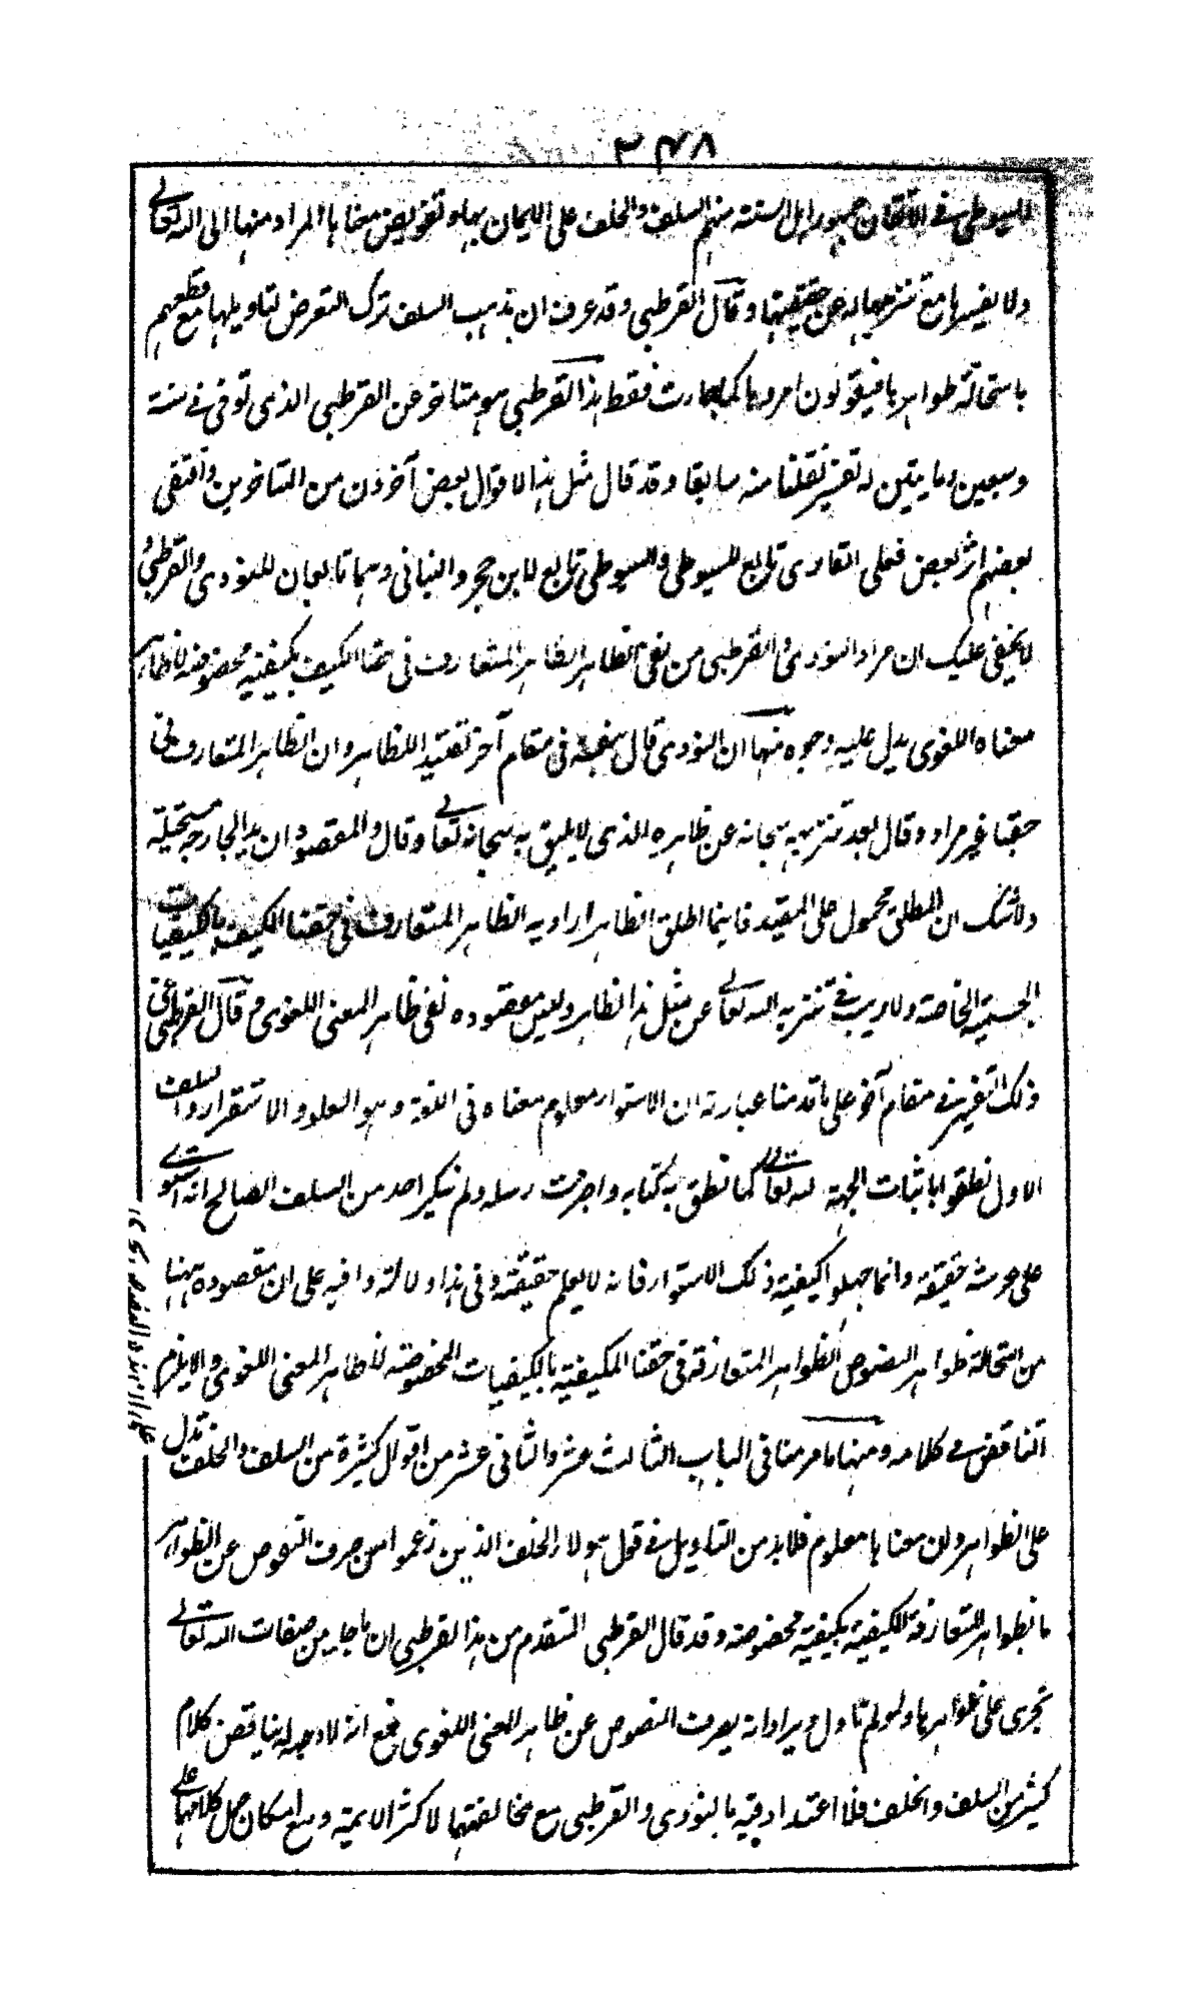 ٣٤٨
السيوطي في الاتقان جمهور اهل السنة منهم السلف والخلف على الايمان بها وتفويض معناها المراد منها الى الله تعالى
ولا يفسرها مع تنزيهنا له عن حقيقتها وقال القرطبي وقد عرف ان مذهب السلف ترك التعرض لتاويلها مع قطعهم
باستحالة ظواهرها فيقولون امروها كما جاءت فقط هذا القرطبي هو متاخر عن القرطبي الذى توفى في سنة
وسبعين ومايتين له تفسير نقلنا منه سابقا وقد قال مثل هذا الاقوال بعض آخرون من المتاخرين واقتفى
بعضهم اثر بعض فعلى القارى تابع للسيوطي والسيوطي تابع لابن حجر و وهما تابعان للنووى والقرطبى و
لا يخفى عليك ان مراد النووى والقرطبى من نفى الظاهر الظاهر المتعارف فى حقنا المكيف بكيفية مخصوصة لا ظاهر
معناه اللغوى يدل عليه وجوه منها ان النووى قال بنفسه فى مقام آخر تقييد الظاهر وان الظاهر المتعارف فى
حقنا غير مراد وقال بعد تنزيهه سبحانه عن ظاهره الذى لا يليق به سبحانه تعالى وقال والمقصود ان يد الجارحة مستحيلة
ولا شك ان المطلق محمول على المقيد فاينما اطلق الظاهر اراد به الظاهر المتعارف فى حقنا المكيف بالكيفيات
الجسمية الخاصة ولا ريب في تنزيه الله تعالى عن مثل هذا الظاهر وليس مقصوده نفى ظاهر المعنى اللغوى و قال القرطبى فى
ذلك التفسير في مقام آخر على ما قدمنا عبارته ان الاستواء معلوم معناه فى اللغة وهو العلو والاستقرار والسلف
الاول نطقوا باثبات الجهة لله تعالى كما نطق به كتابه واخبرت رسله ولم ينكر احد من السلف الصالح انه استوى
على عرشه حقيقة وانما جهلوا كيفية ذلك الاستواء فانه لا يعلم حقيقته وفى هذا دلالة وافية على ان مقصوده ههنا
من استحالة ظواهر النصوص الظواهر المتعارفة فى حقنا المكيفية بالكيفيات المخصوصة لا ظاهر المعنى اللغوى والا يلزم
التناقض في كلامه ومنها ما مر منا فى الباب الثالث عشر والثانى عشر من اقوال كثيرة من السلف والخلف تدل
على الظواهر وان معناها معلوم فلابد من التاويل في قول هولاء الخلف الذين زعموا من صرف النصوص عن الظواهر
بالظواهر المتعارفة المكيفية بكيفية مخصوصة وقد قال القرطبى المتقدم من هذا القرطبى ان ما جاء من صفات الله تعالى
تجرى على ظواهرها ولو لم تاول ويراد انه يصرف النصوص عن ظاهر المعنى اللغوى فمع انه لا وجه له يناقض كلام
كثير من السلف والخلف فلا اعتداد فيه بالنووى والقرطبى مع مخالفتهما لاكثر الايمة ومع امكان حمل كلامهما على